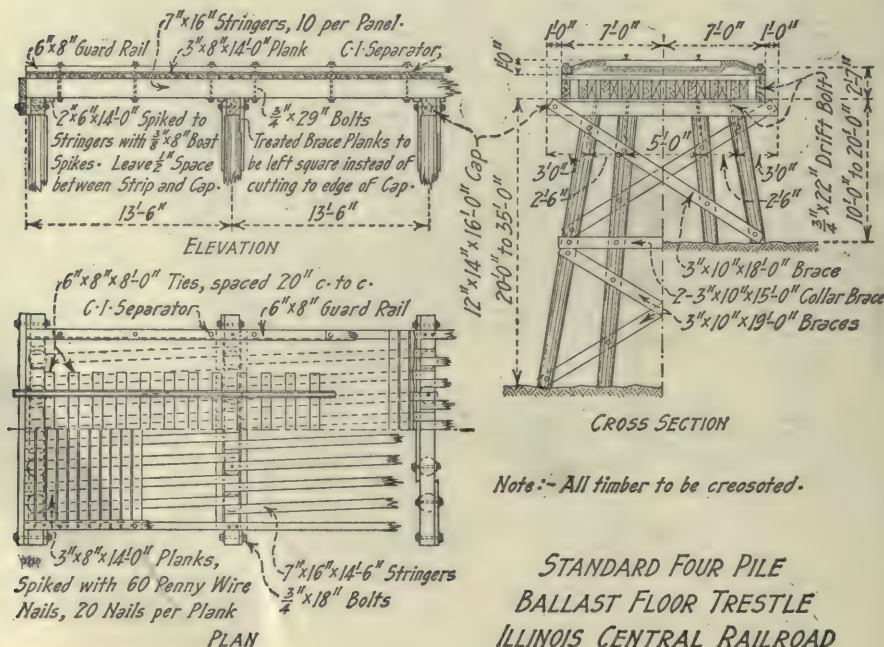 7"x16" Stringers, 10 per Panel.
6"x8" Guard Rail
3"x8"x14'-0" Plank
C·I·Separator
2"x6"x14'-0" Spiked to
Stringers with 3/8"x8" Boat
Spikes. Leave 1/2" Space
between Strip and Cap.
3/4"x29" Bolts
Treated Brace Planks to
be left square instead of
cutting to edge of Cap.
13'-6"
13'-6"
ELEVATION
6"x8"x8'-0" Ties, spaced 20" c. to c.
C·I·Separator
6"x8" Guard Rail
3"x8"x14'-0" Planks,
Spiked with 60 Penny Wire
Nails, 20 Nails per Plank
7"x16"x14'-6" Stringers
3/4"x18" Bolts
PLAN
1'-0"
7'-0"
7'-0"
1'-0"
2'-7"
12"x14"x16'-0" Cap
20'-0" to 35'-0"
5'-0"
3'0"
2'-6"
3'0"
2'-6"
3/4"x22" Drift Bolts
10'-0" to 20'-0"
3"x10"x18'-0" Brace
2-3"x10"x15'-0" Collar Brace
3"x10"x19'-0" Braces
CROSS SECTION
Note:- All timber to be creosoted.
STANDARD FOUR PILE
BALLAST FLOOR TRESTLE
ILLINOIS CENTRAL RAILROAD